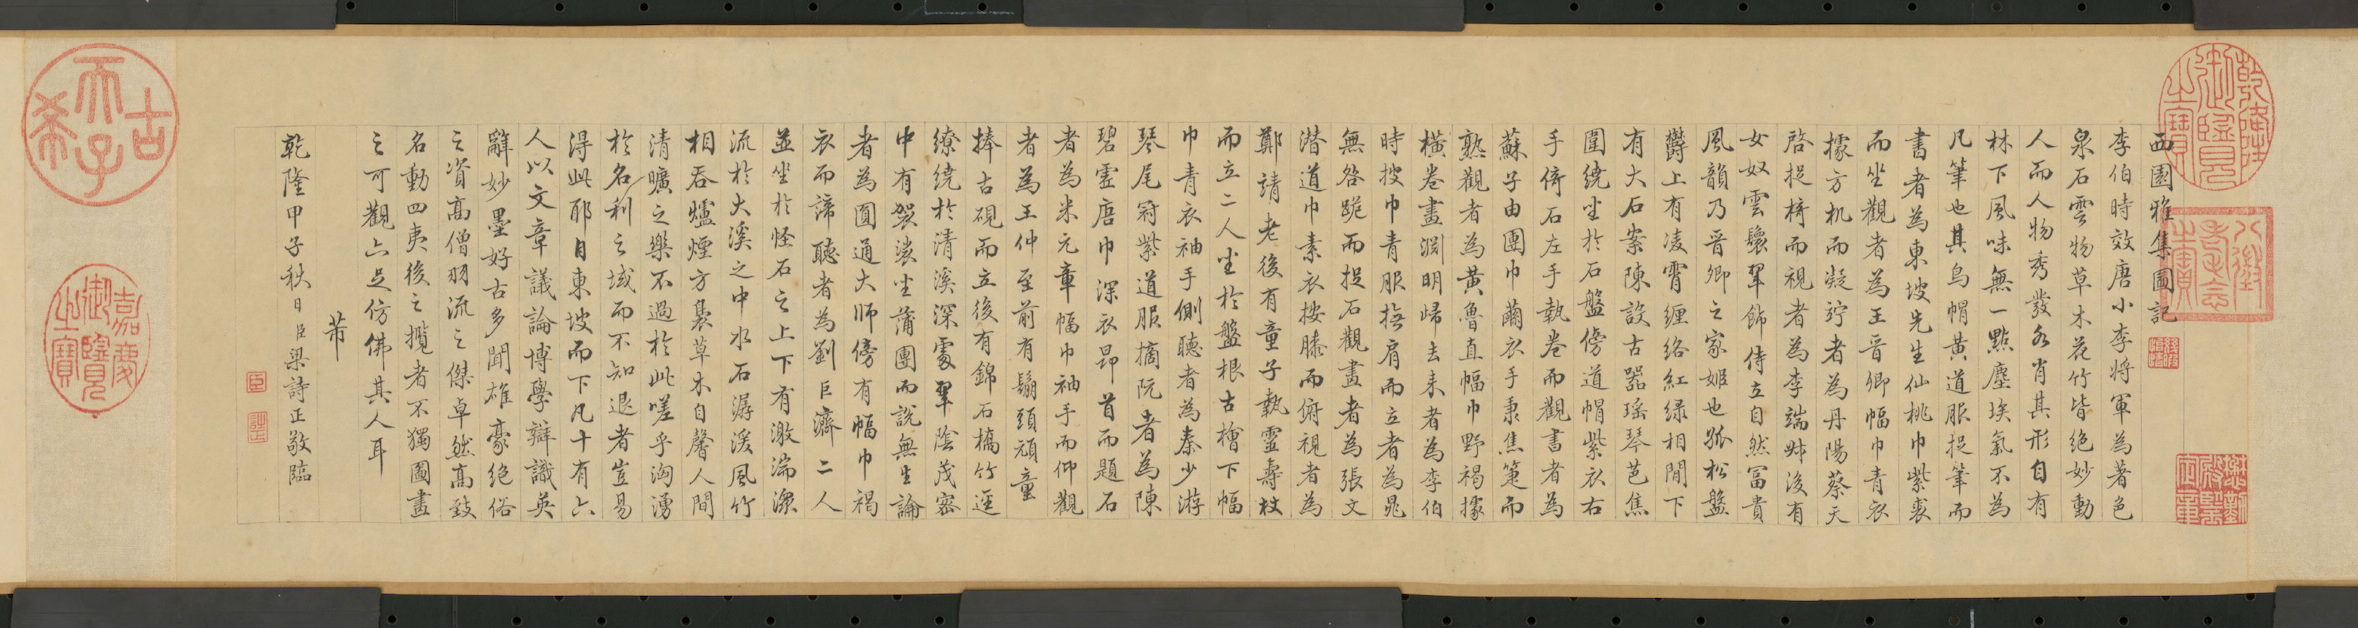 乾隆御覽之寶
八徵耄念之寶
懋勤殿鑒定章
西園雅集圖記
李伯時效唐小李將軍為著色
泉石雲物草木花竹皆絕妙動
人而人物秀發各肖其形自有
林下風味無一點塵埃氣不為
凡筆也其烏帽黃道服捉筆而
書者為東坡先生仙桃巾紫裘
而坐觀者為王晉卿幅巾青衣
據方机而凝竚者為丹陽蔡天
啓捉椅而視者為李端叔後有
女奴雲鬟翠飾侍立自然富貴
風韻乃晉卿之家姬也孤松盤
欝上有凌霄纏絡紅綠相間下
有大石案陳設古器瑤琴芭蕉
圍繞坐於石盤傍道帽紫衣右
手倚石左手執卷而觀書者為
蘇子由團巾繭衣手秉焦箑而
熟觀者為黃魯直幅巾野褐據
橫卷畫淵明歸去来者為李伯
時披巾青服撫肩而立者為晁
無咎跪而捉石觀畫者為張文
潛道巾素衣按膝而俯視者為
鄭請老後有童子執靈壽杖
而立二人坐於盤根古檜下幅
巾青衣袖手側聽者為秦少游
琴尾冠紫道服摘阮者為陳
碧虛唐巾深衣昂首而題石
者為米元章幅巾袖手而仰觀
者為王仲至前有鬅頭頑童
捧古硯而立後有錦石橋竹逕
繚繞於清溪深處翠陰茂密
中有袈裟坐蒲團而說無生論
者為圓通大師傍有幅巾褐
衣而諦聽者為劉巨濟二人
並坐於怪石之上下有激湍潨
流於大溪之中水石潺湲風竹
相吞爐煙方裊草木自馨人間
清曠之樂不過於此嗟乎洶湧
於名利之域而不知退者豈易
得此耶自東坡而下凡十有六
人以文章議論博學辯識英
辭妙墨好古多聞雄豪絕俗
之資高僧羽流之傑卓然高致
名動四夷後之攬者不獨圖畫
之可觀亦足仿佛其人耳
芾
乾隆甲子秋日臣梁詩正敬臨
臣
詩正
古希天子
嘉慶御覽之寶